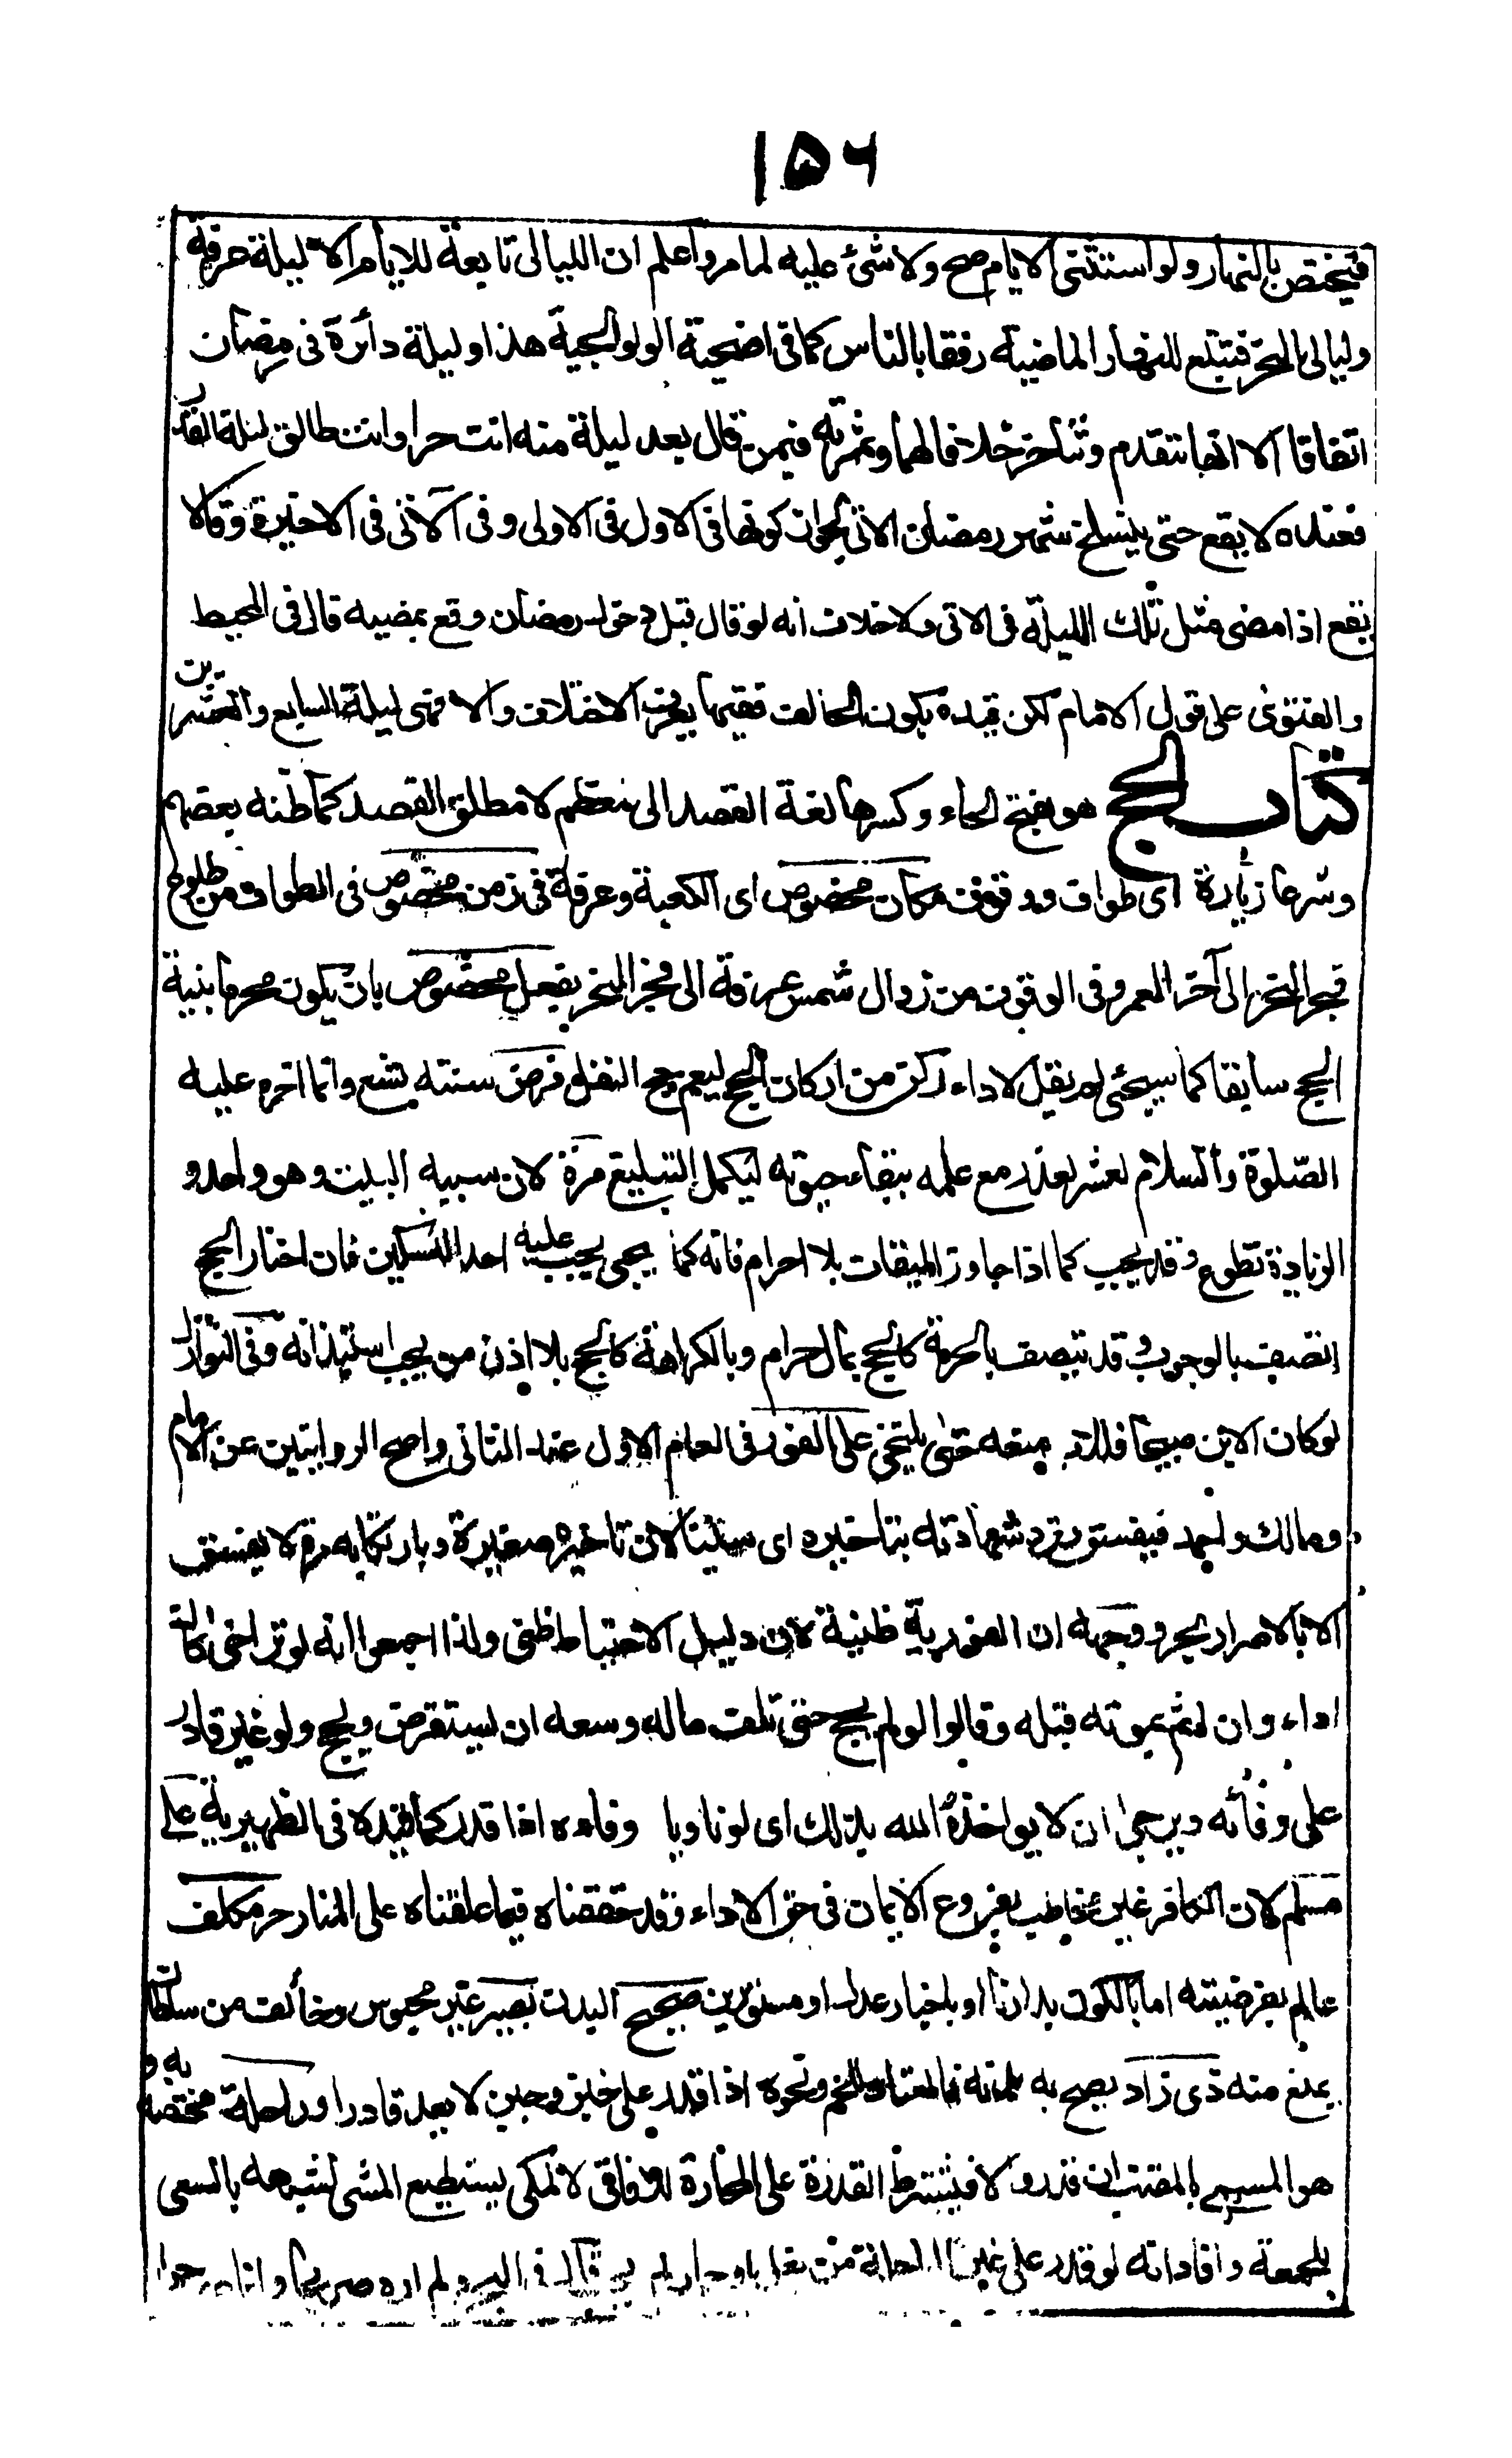 ١٥٦
فيختص بالنهار ولو استثنى الايام صح ولا شئ عليه لما مر واعلم ان الليالى تابعة للايام الا ليلة عرفة
وليالى النحر فتبع للنهار الماضية رفقا بالناس كما فى اضحية الولوالجية هذا وليلة دائرة فى رمضان
اتفاقا الا انها تتقدم وتتأخر خلافا لهما وثمرته فيمن قال بعد ليلة منه انت حر او انت طالق ليلة القدر
فعنده لا يقع حتى ينسلخ شهر رمضان الاتى لجواز كونها فى الاول فى الاولى وفى الآتى فى الاخيرة وقالا
يقع اذا مضى مثل تلك الليلة فى الاتى ولا خلاف انه لو قال قبل دخول رمضان وقع بمضيه قال فى المحيط
والفتوى على قول الامام لكن قيده بكون الحالف فقيها يعرف الاختلاف والا فهى ليلة السابع والعشرين
كتاب الحج هو بفتح الحاء وكسرها لغة القصد الى معظم لا مطلق القصد كما ظنه بعضهم
وشرعا زيارة اى طواف ووقوف مكان مخصوص اى الكعبة وعرفة فى زمن مخصوص فى الطواف من طلوع
فجر النحر الى آخر العمر وفى الوقوف من زوال شمس عرفة الى فجر النحر بفعل مخصوص بان يكون محرما بنية
الحج سابقا كما سيجئ لم يقل لاداء ركن من اركان الحج ليعم حج النفل فرض سنته تسع وانما اخره عليه
الصلوة والسلام لعشر لعذر مع علمه ببقاء حيوته ليكمل التبليغ مرة لان سببه البيت وهو واحد و
الزيادة تطوع وقد يجب كما اذا جاوز الميقات بلا احرام فانه كما يجى يجب عليه احد النسكين فان اختار الحج
اتصف بالوجوب وقد يتصف بالحرمة كالحج بمال حرام وبالكراهة كالحج بلا اذن من يجب استيذانه وفى النوازل
لو كان الابن صبيحا فللاب منعه حتى يلتحى على الفور فى العام الاول عند الثانى واصح الروايتين عن الامام
ومالك واحمد فيفسق وترد شهادته بتاخيره اى سنينا لان تاخيره صغيرة وبارتكابه مرة لا يفسق
الا بالاصرار بحر ووجهه ان الفورية ظنية لان دليل الاحتياط ظنى ولذا اجمعوا انه لو تراخى كان
اداء وان اثم بموته قبله وقالوا لو لم يحج حتى تلف ماله وسعه ان يستقرض ويحج ولو غير قادر
على وفائه ويرجى ان لا يواخذه الله بذلك اى لو ناويا وفاءه اذا قدر كما قيده فى الظهيرية على
مسلم لان الكافر غير مخاطب بفروع الايمان فى حق الاداء وقد حققناه فيما علقناه على المنار حر مكلف
عالم بفرضيته اما بالكون بدارنا او باخبار عدل او مستورين صحيح البدن بصير غير محبوس وخائف من سلطان
يمنع منه ذى زاد يصح به بدنه فالمعتاد اللحم ونحوه اذا قدر على خبز وجبن لا يعد قادرا وراحلة مختصة به و
هو المسمى بالمقتب ان قدر والا فيشترط القدرة على المحارة للآفاقى لا لمكى يستطيع المشى لشبهه بالسعى
للجمعة وافاد انه لو قدر على غير الراحلة من بغل او حمار لم يجب قال فى البحر ولم اره صريحا وانما صرحوا